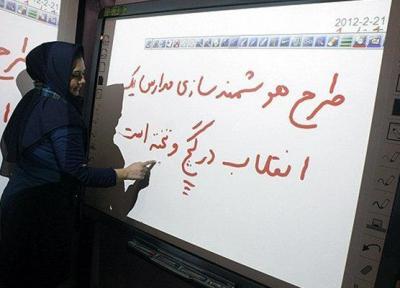 2012-2-21
طرح هوشمندسازی مدارس یک
انقلاب در گچ و تخته است